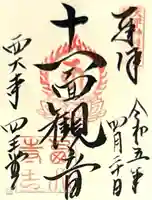 奉拝
令和五年
四月二十日
十一面観音
西大寺
四王堂